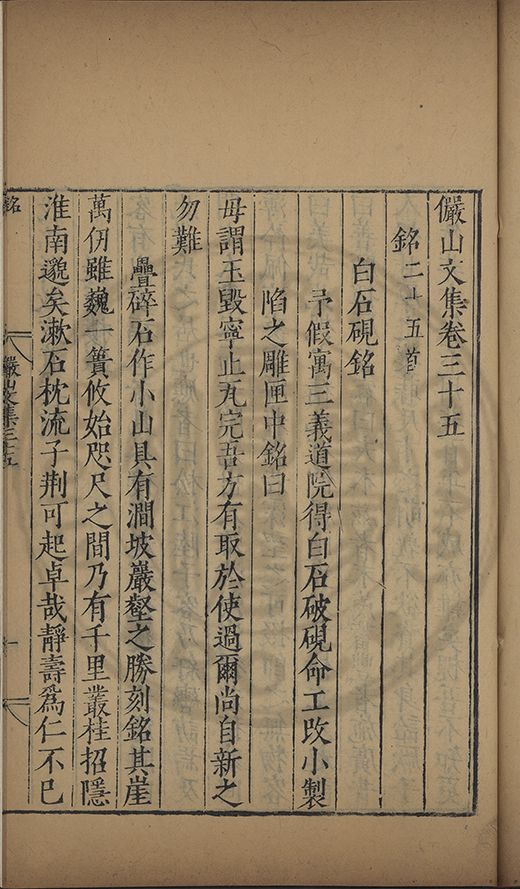 儼山文集卷三十五
銘二十五首
白石硯銘
予假寓三義道院得白石破硯命工改小製
陷之雕匣中銘曰
毋謂玉毀寧止瓦完吾方有取於使過爾尚自新之
勿難
疊碎石作小山具有澗坡巖壑之勝刻銘其崖
萬仞雖巍一簣攸始咫尺之間乃有千里叢桂招隱
淮南邈矣漱石枕流子荆可起卓哉靜壽爲仁不已
銘
儼山文集三十五